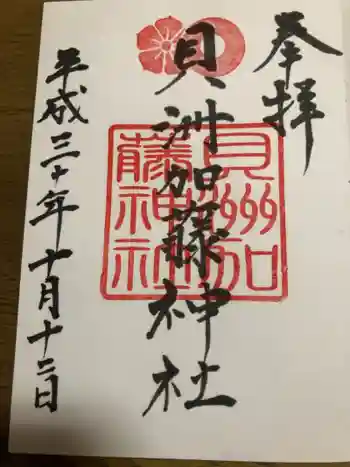 奉拝
貝洲加藤神社
貝洲加藤神社
平成三十年十月十二日